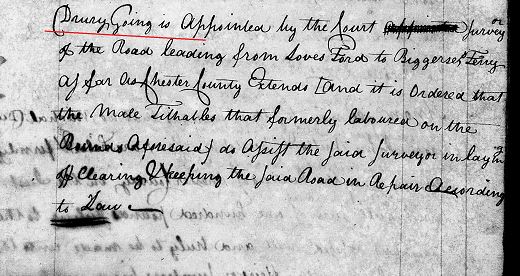 Drury Going is Appointed by the Court Surveyor
of the Road leading from Loves Ford to Biggerses Ferry
as far as Chester County Extends [and it is ordered that
the Male Tithables that formerly laboured on the
Aforesaid] do Assist the said Surveyor in layg
off clearing & keeping the said Road in Repair According
to Law